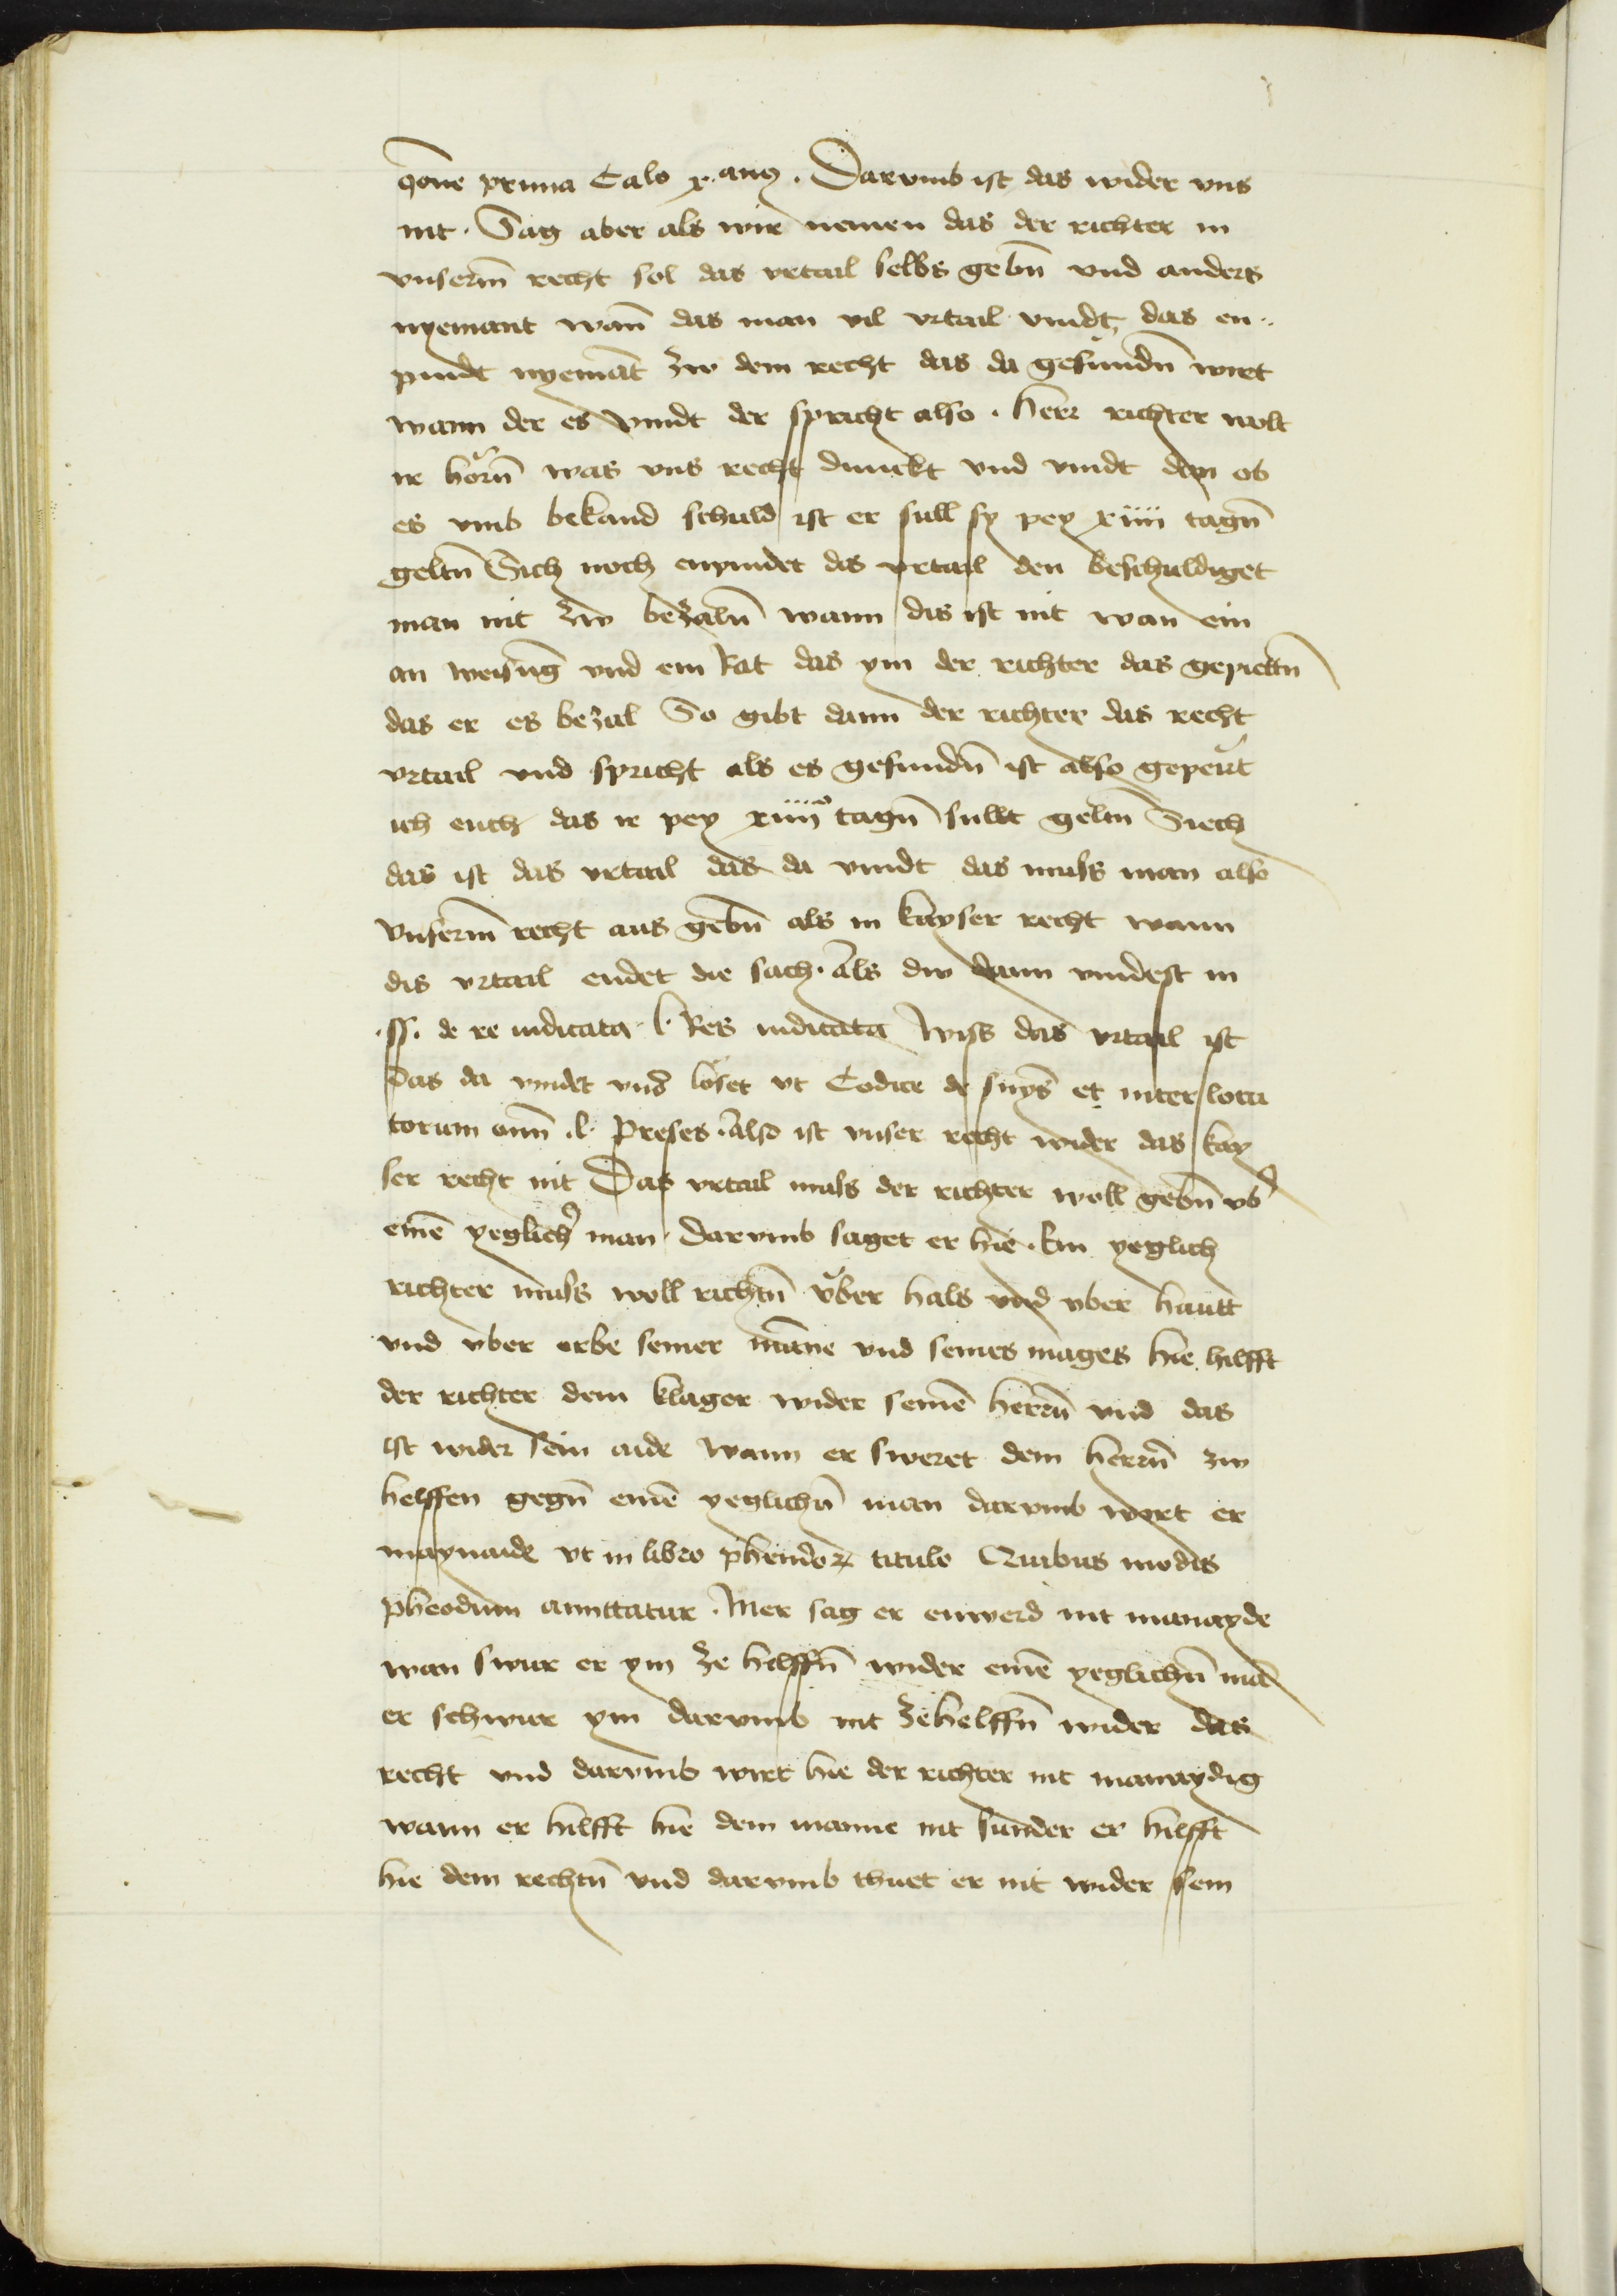 qōne prima Calo x ang . Darvmb ist das wider vns
nit . Sag aber als wir nemen das der richter in
vnserm̄ recht sol das vrtail selbs gebn̄ vnd anders
nyemant wan̄ das man vil vrtail vindt, das en-
pindt nyemāt zw dem recht das da gefundn̄ wirt
wann der es vindt der spricht also . herr richter wolt
ir hörn̄ was vns recht dunckt vnd vindt den ob
es vmb bekand schuld ist er sull sy pey xiiii tagn̄
geltn̄ Sich noch enpindet dis vrtail den beschuldiget
man nit zw bezaln̄ wann das ist nit wan ein
an weisūg vnd ein Rat das ym der richter das gepiettn̄
das er es bezal So gibt dann der richter das recht
vrtail vnd spricht als es gefundn̄ ist also gepeüt
ich euch das ir pey xiiii tagn̄ sullt geltn̄ Siech
das ist das vrtail das da vindt das muss man also
Vnserm̄ recht aus gebn̄ als in kayser recht wann
dis vrtail endet die sach . als dw dann vindest in
.ff. de re iudicata . l . Res iudicata Wiss das vrtail ist
Das da vindet vnd löset vt Codice de snyš et interlocu
torum omn̄ . l . Preses . also ist vnser recht wider das kay
ser recht nit Das vrtail muss der richter woll gebn̄ vb̾
einē yeglich̾ man . darvmb saget er hie . Ein yeglich
richter muss woll richtn̄ über hals vnd vber hautt
vnd vber erbe seiner mānne vnd seines mages hie hilfft
der richter dem klager wider seinē herrn̄ vnd das
ist wider sein aide wann er sweret dem herrn̄ zw
helffen gegn̄ einē yeglichn̄ man darvmb wirt er
maynaide vt in libro pheudoꝝ titulo Quibus modis
pheodum amittatur . Mer sag er enwerd nit mainayde
wan swur er ym ze helffn̄ wider einē yeglichn̄ mā
er schwur ym darvmb nit zehelffn̄ wider das
recht vnd darvmb wirt hie der richter nit mainaydig
wann er hilfft hie dem manne nit sunder er hilfft
hie dem rechtn̄ vnd darvmb thuet er nit wider sein